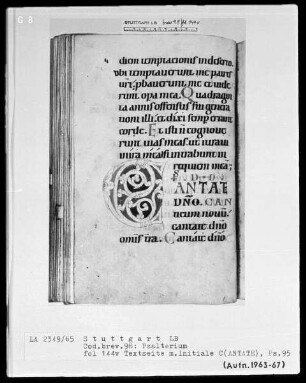 G B
diem temptationis in deserto.
ubi temptaverunt me patres
vestri, probaverunt me et vide
runt opera mea. Quadragin
ta annis offensus fui genera
tioni illi, et dixi semper errant
corde. Et isti non cognove
runt vias meas, ut iuravi
in ira mea si intrabunt in
requiem meam;
CANTATE
DÑO. CAN
ticum novū.
cantate dño
omnis terra. Cantate dño
LA 2349/65 Stuttgart LB
Cod.brev.98: Psalterium
fol 144v Textseite m.Initiale C(ANTATE), Ps.95
(Aufn.1963-67)